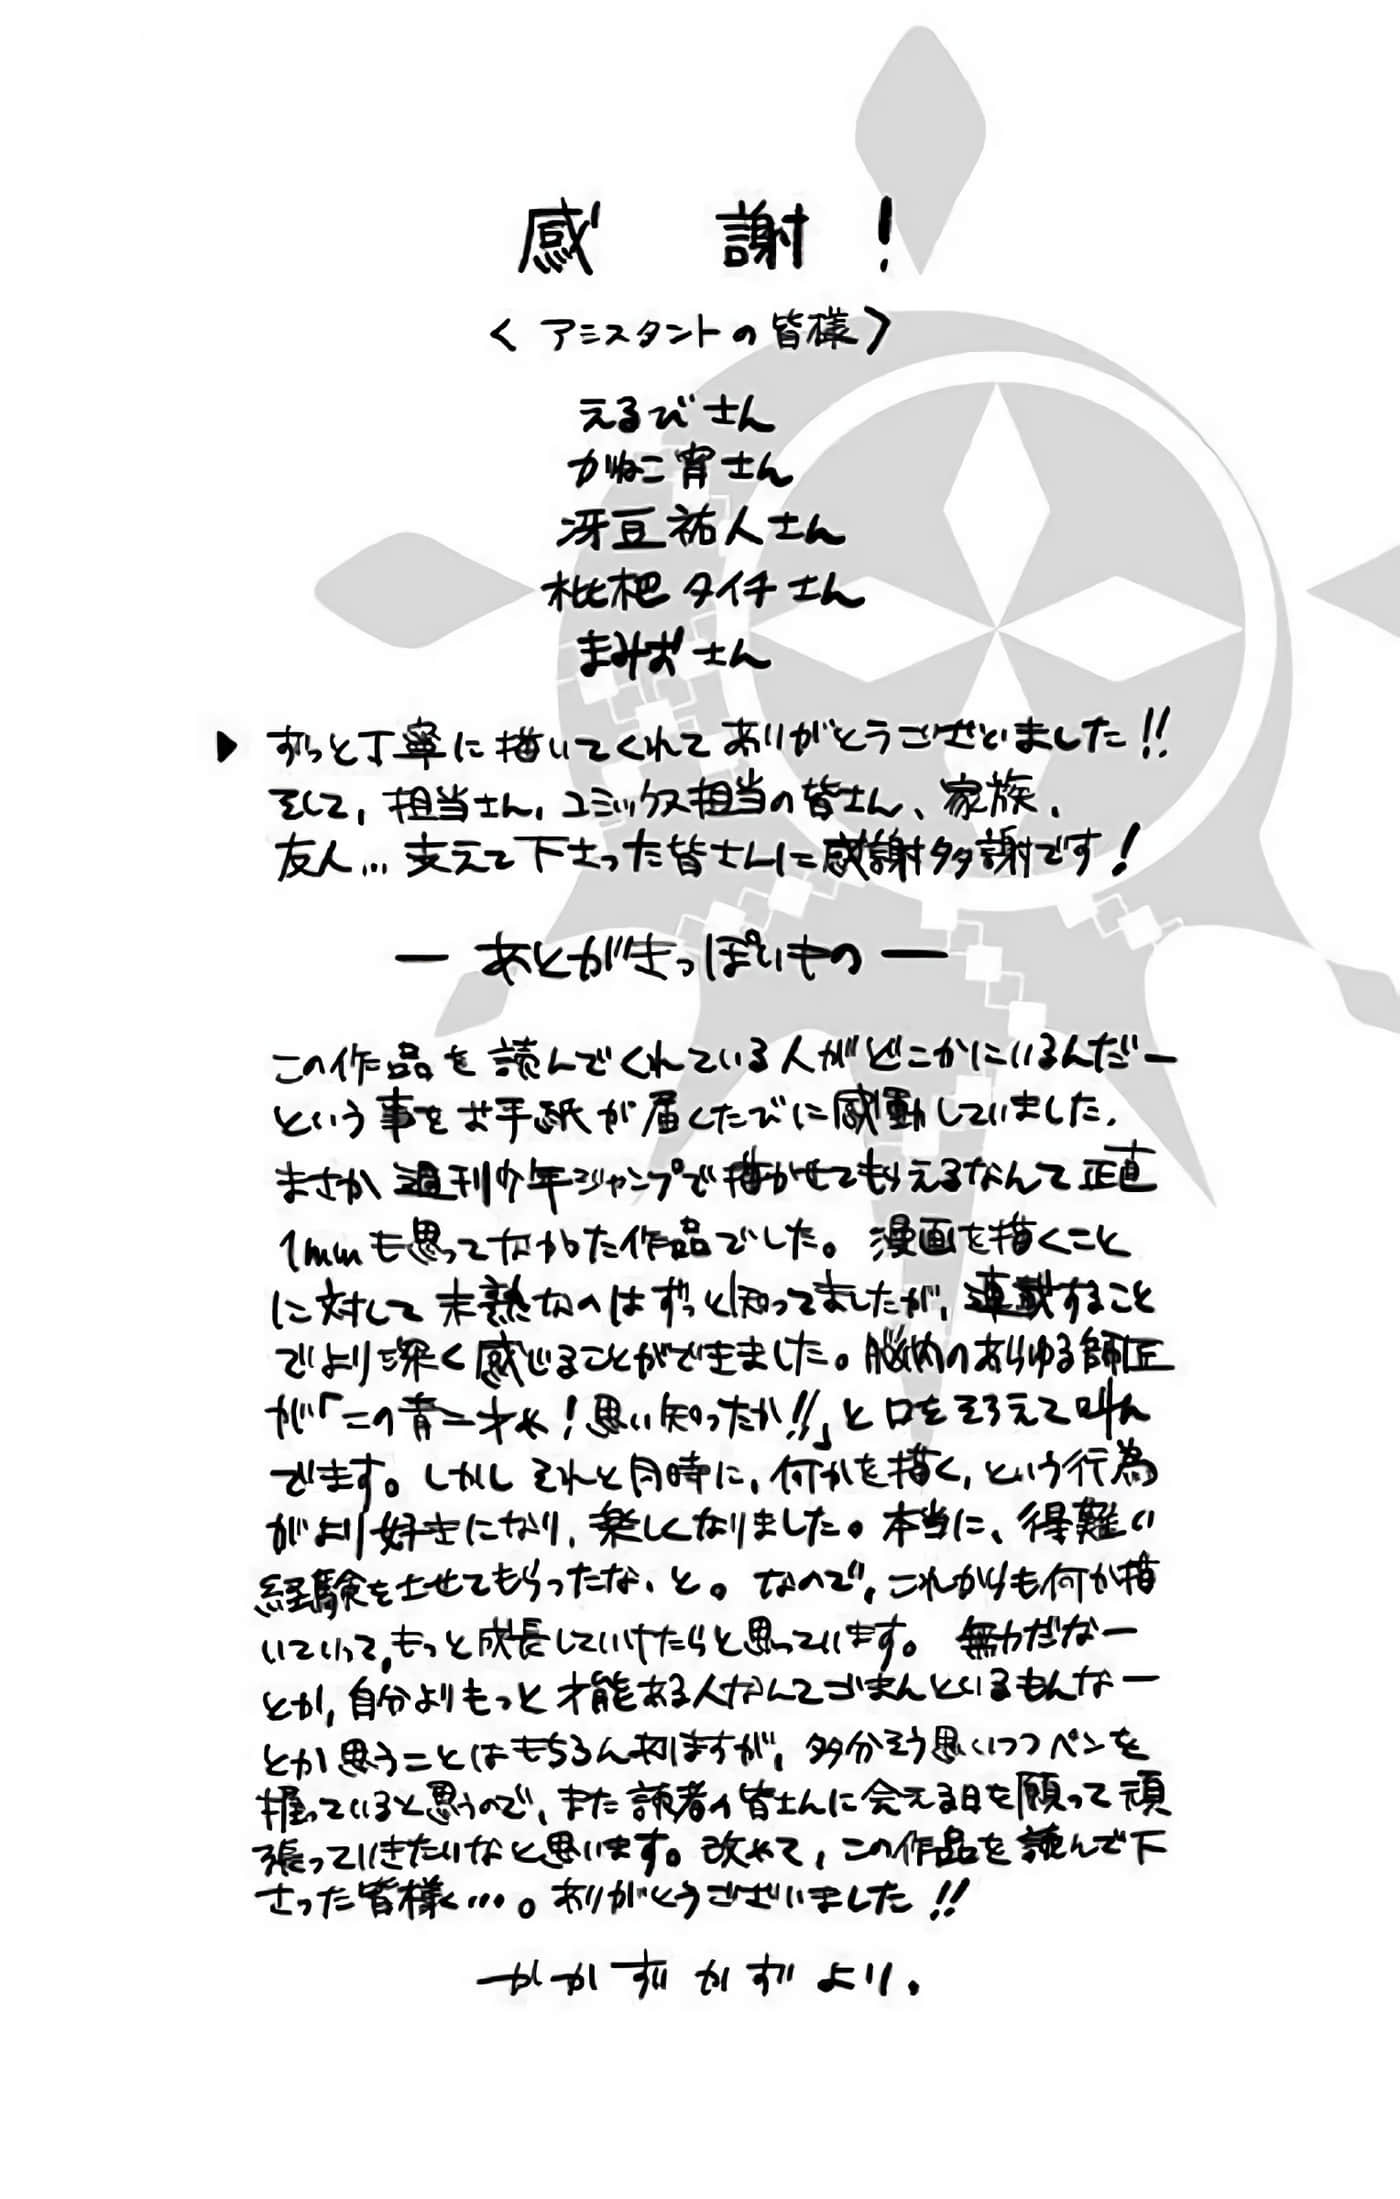 感謝!
〈アシスタントの皆様〉
えるびさん
かねこ宵さん
冴豆祐人さん
枇杷タイチさん
まみおさん
▶ ずっと丁寧に描いてくれてありがとうございました!!
そして、担当さん、コミックス担当の皆さん、家族、
友人…支えて下さった皆さんに感謝多謝です!
— あとがきっぽいもの —
この作品を読んでくれている人がどこかにいるんだー
という事をお手紙が届くたびに感動していました。
まさか週刊少年ジャンプで描かせてもらえるなんて正直
1mmも思ってなかった作品でした。漫画を描くこと
に対して未熟なのはずっと知ってましたが、連載すること
でより深く感じることができました。脳内のあらゆる師匠
が「この青二才め!思い知ったか!!」と口をそろえて叫ん
でます。しかしそれと同時に、何かを描く、という行為
がより好きになり、楽しくなりました。本当に、得難い
経験をさせてもらったな、と。なので、これからも何か描
いていって、もっと成長していけたらと思っています。無力だなー
とか、自分よりもっと才能ある人なんてごまんといるもんなー
とか思うことはもちろん有りますが、多分そう思いつつペンを
握っていると思うので、また読者の皆さんに会える日を願って頑
張っていきたいなと思います。改めて、この作品を読んで下
さった皆様…。ありがとうございました!!
かかずかず より.